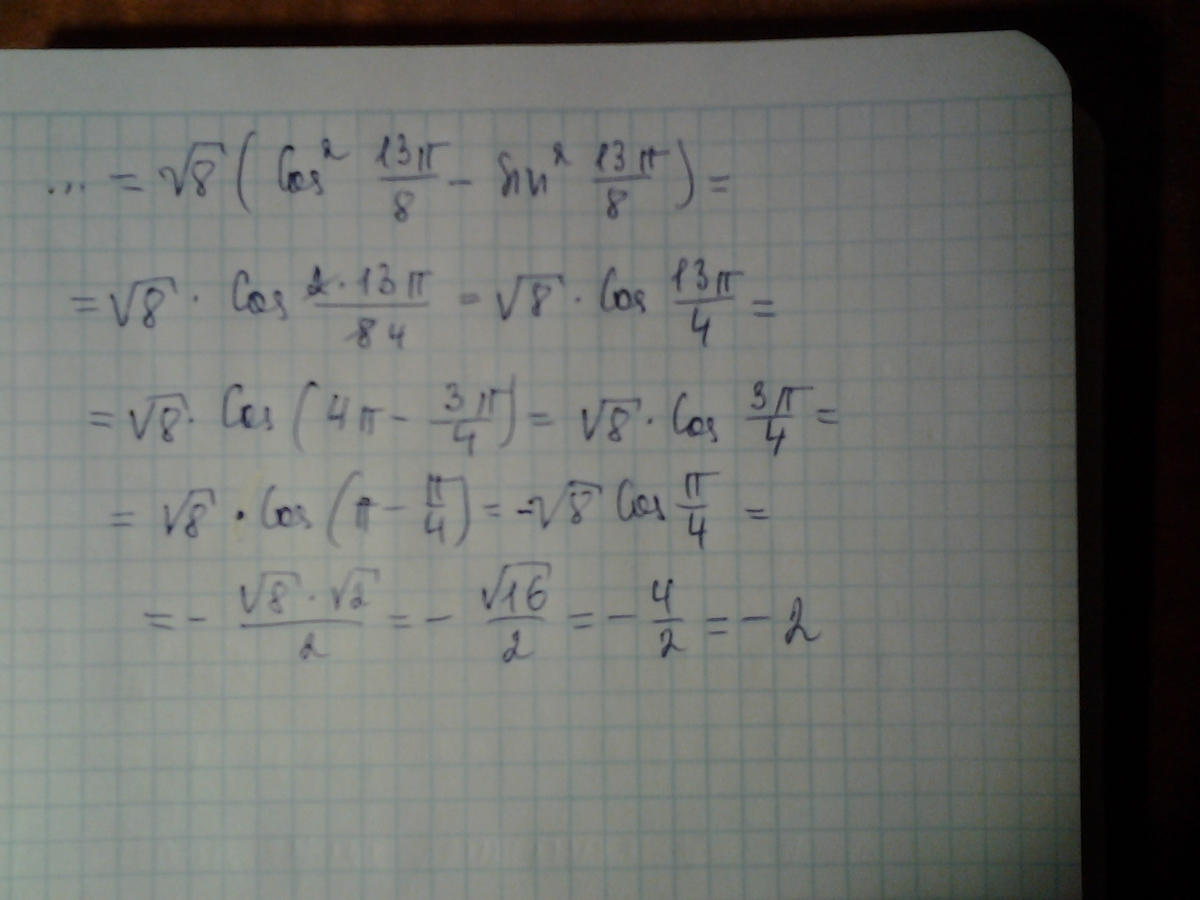 ... = √8 ( Cos² 13π/8 - Sin² 13π/8 ) =
= √8 · Cos 2·13π/8 4 = √8 · Cos 13π/4 =
= √8 · Cos ( 4π - 3π/4 ) = √8 · Cos 3π/4 =
= √8 · Cos ( π - π/4 ) = -√8 Cos π/4 =
= - √8 · √2/2 = - √16/2 = - 4/2 = - 2